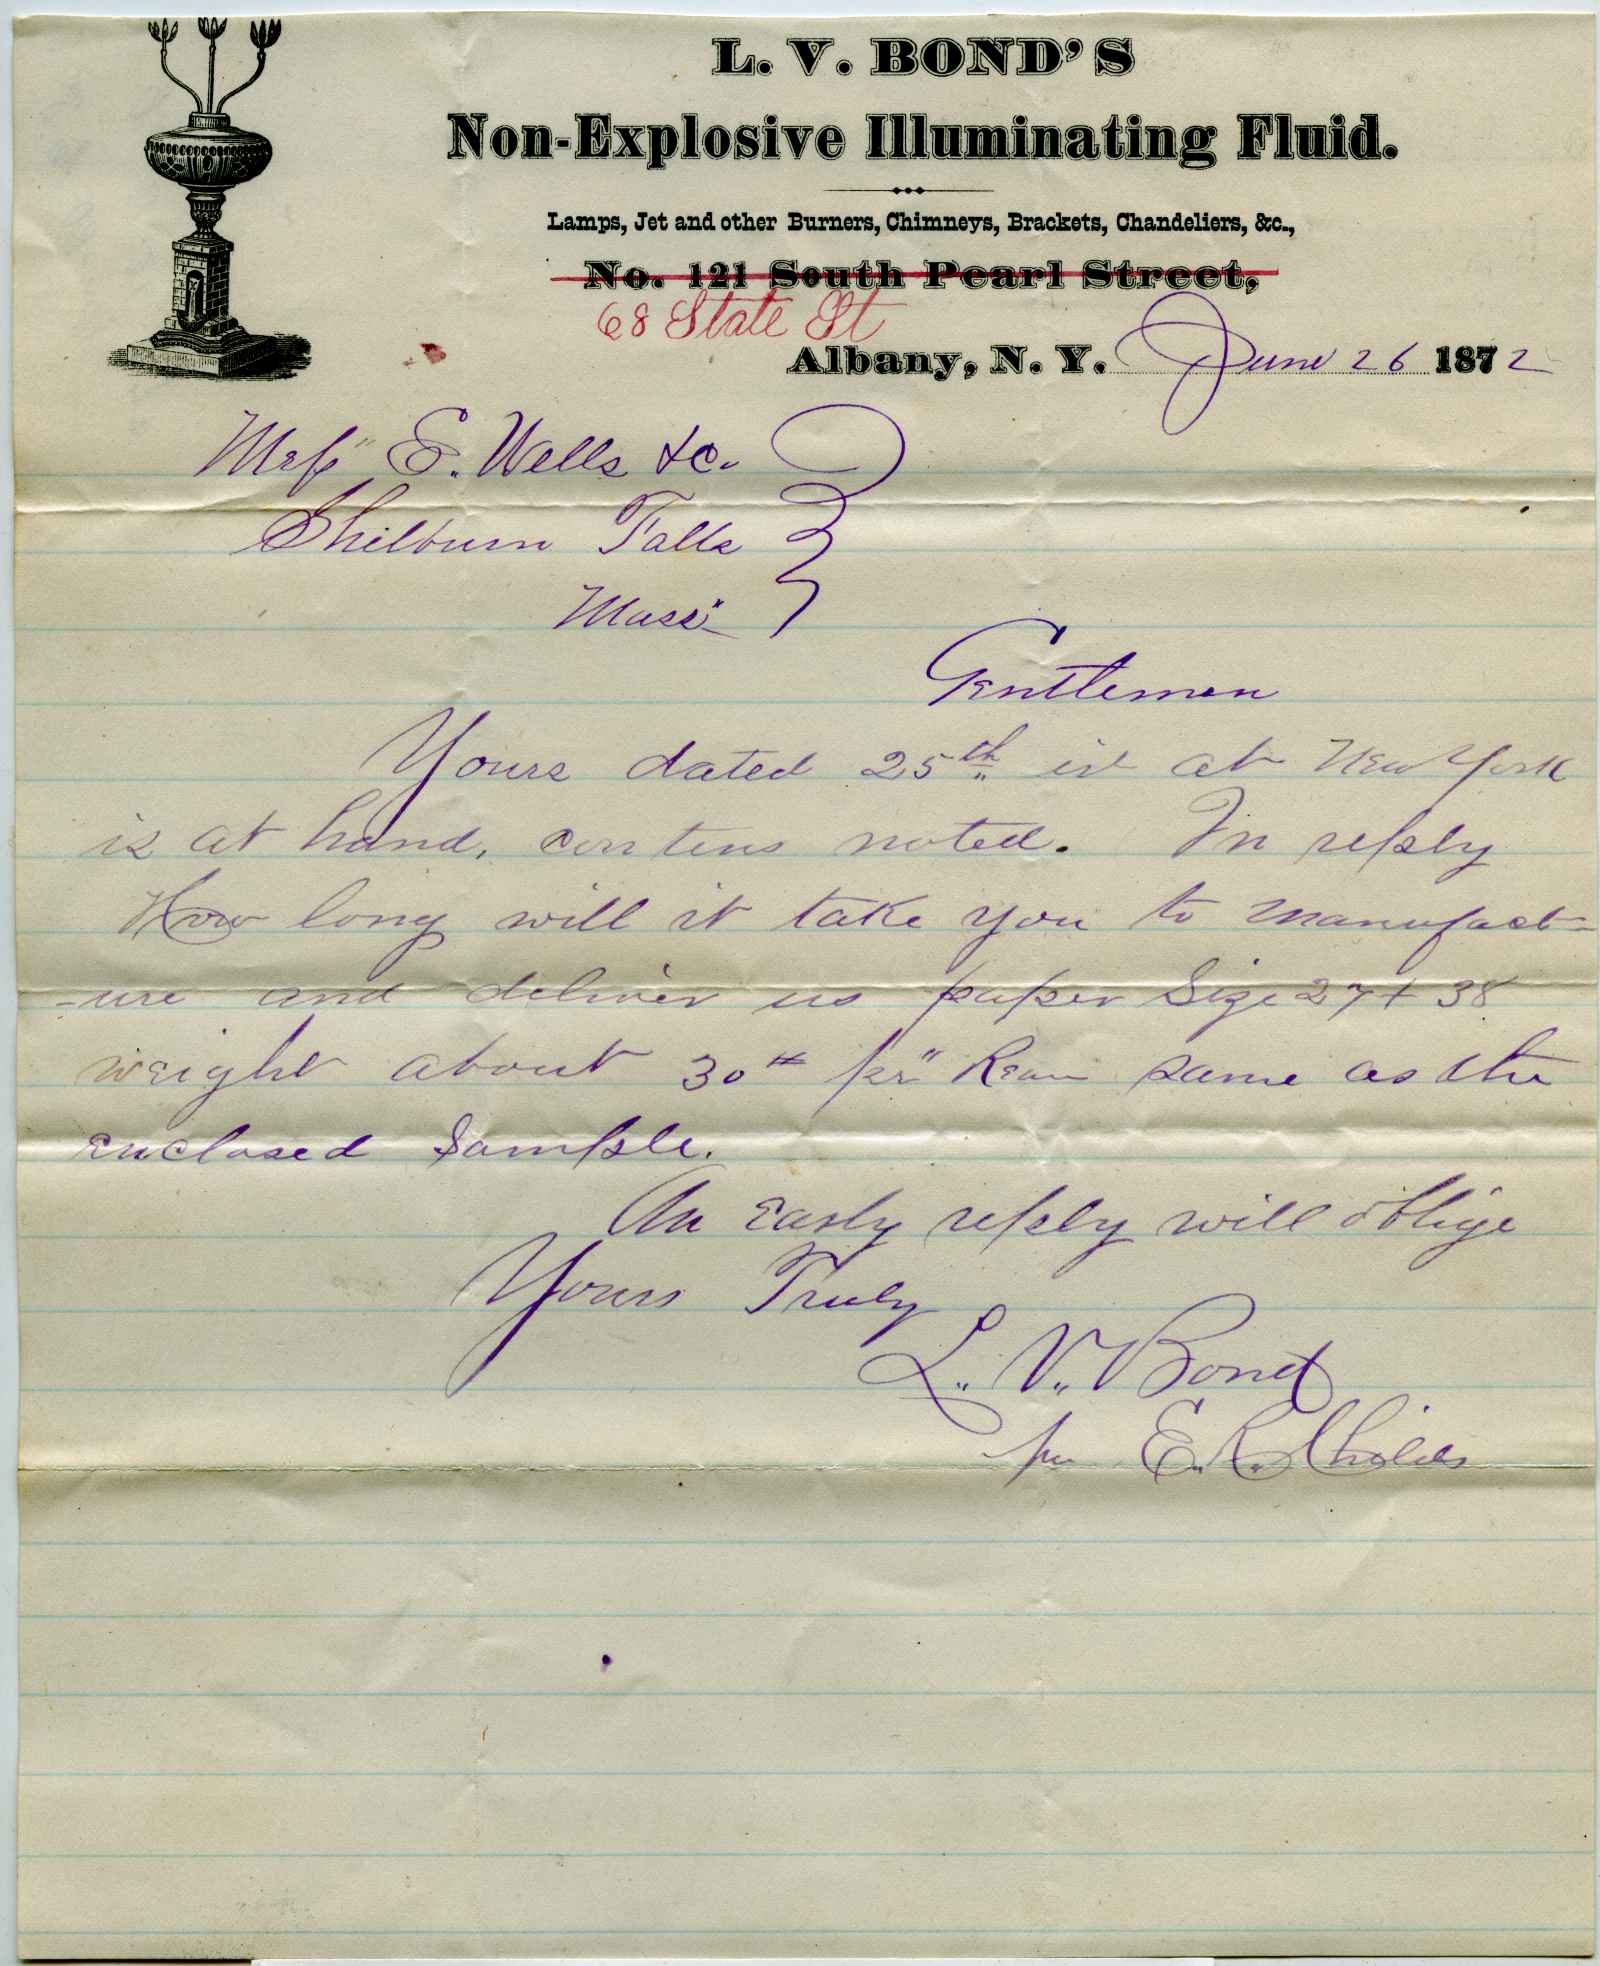 L. V. BOND'S
Non-Explosive Illuminating Fluid.
Lamps, Jet and other Burners, Chimneys, Brackets, Chandeliers, &c.,
No. 121 South Pearl Street,
68 State St
Albany, N. Y. June 26 1872
E. Wells & Co.
Shelburn Falls
Mass
Gentlemen
Yours dated 25th at New York
is at hand, contens noted. In reply
How long will it take you to manufact-
-ure and deliver us paper Size 27 + 38
weight about 30 # pr" Ream same as the
enclosed Sample.
An Early reply will oblige
Yours Truly
L. V. Bond
per E. R. Childs